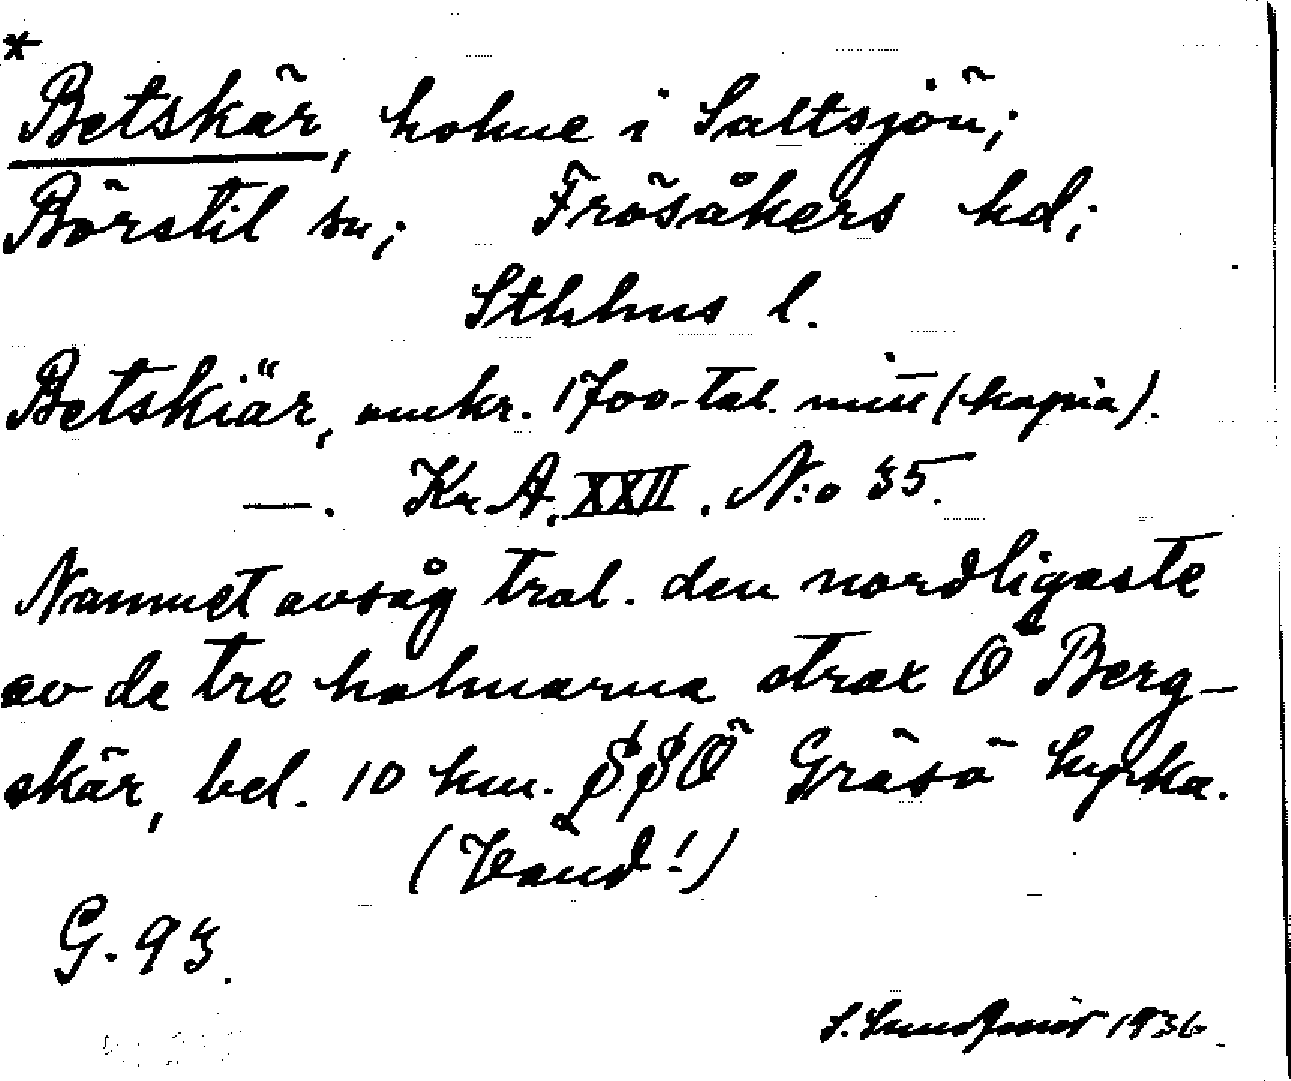 *
Betskär, holme i Saltsjön;
Börstil sn; Frösåkers hd;
Sthlms l.
Betskiär, omkr. 1700-tal. mitt (kopia).
—. Kr. A. XXII. N:o 35.
Namnet avsåg trol. den nordligaste
av de tre holmarna strax Ö Berg-
skär, bel. 10 km. SSÖ Gräsö kyrka.
(Vänd!)
G. 93.
1936.